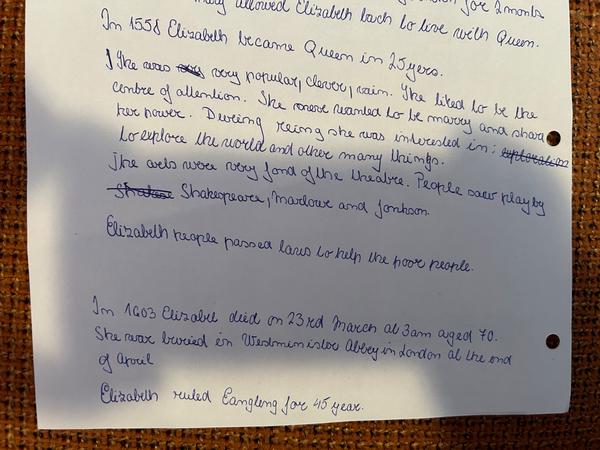 Mary allowed Elizabeth back to live with Queen. for 2 months
In 1558 Elizabeth became Queen in 25 yers.
She was very popular, clever, vain. She liked to be the
centre of attention. She never wanted to be marry and share
her power. Dureing reing she was interested in:
to explore the world and other many things.
The arts were very fond of the theatre. People saw play by
Shakespeare, Marlowe and Jonhson.
Elizabeth people passed laws to help the poor people.
In 1603 Elizabet died on 23rd March at 3am aged 70.
She was buried in Westminister Abbey in London at the end
of April
Elizabeth ruled Eangleng for 45 year.